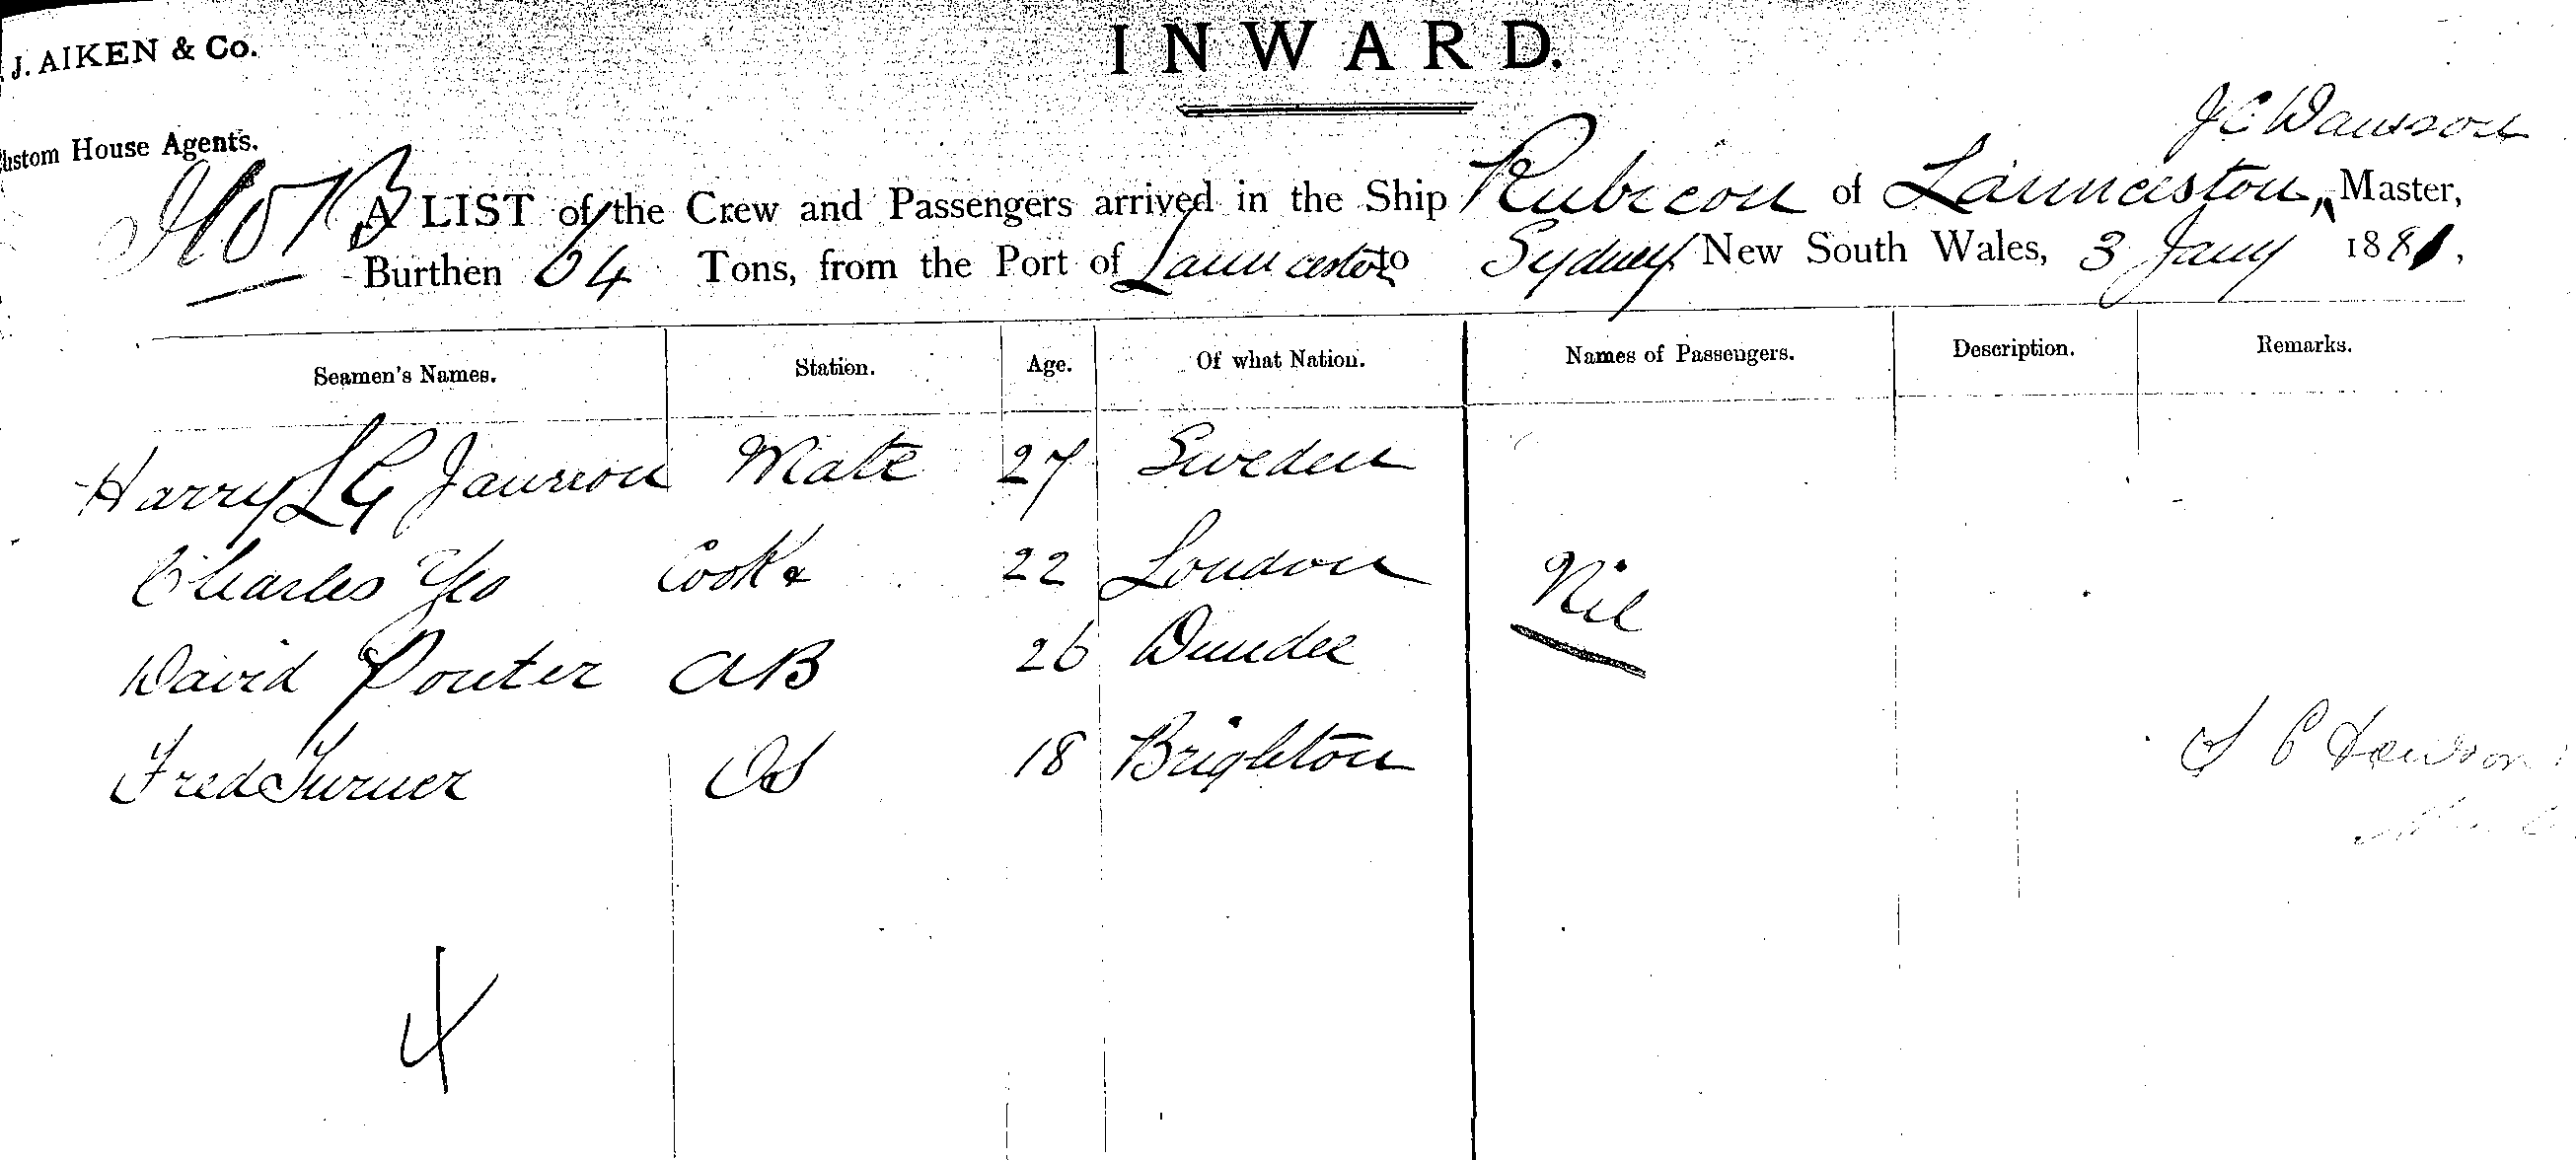 J. AIKEN & Co.
INWARD.
Custom House Agents.
J C Dawson
A LIST of the Crew and Passengers arrived in the Ship Rubicon of Launceston, Master,
Burthen 64 Tons, from the Port of Launceston to Sydney New South Wales, 3 Jany 1881,
Seamen's Names. Station. Age. Of what Nation. Names of Passengers. Description. Remarks.
Harry L G Mate 27 Sweden
Charles Yeo Cook & 22 London Nil
David Porter AB 26 Dundee
Fred Turner OS 18 Brighton
4